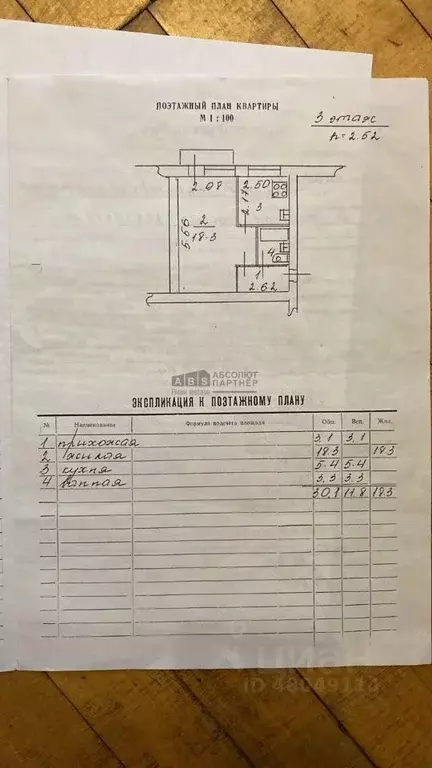 ПОЭТАЖНЫЙ ПЛАН КВАРТИРЫ
М 1 : 100
3 этаж
h=2.52
2.08
2.50
2.17
3
5.66
2
18.3
4
1
2.62
ABS АБСОЛЮТ ПАРТНЁР
Real estate
ЭКСПЛИКАЦИЯ К ПОЭТАЖНОМУ ПЛАНУ
№ Наименование Формула подсчета площади Общ. Всп. Жил.
1 прихожая 3.1 3.1
2 жилая 18.3 18.3
3 кухня 5.4 5.4
4 ванная 3.3 3.3
30.1 11.8 18.3
ЦИАН
ID 48049118